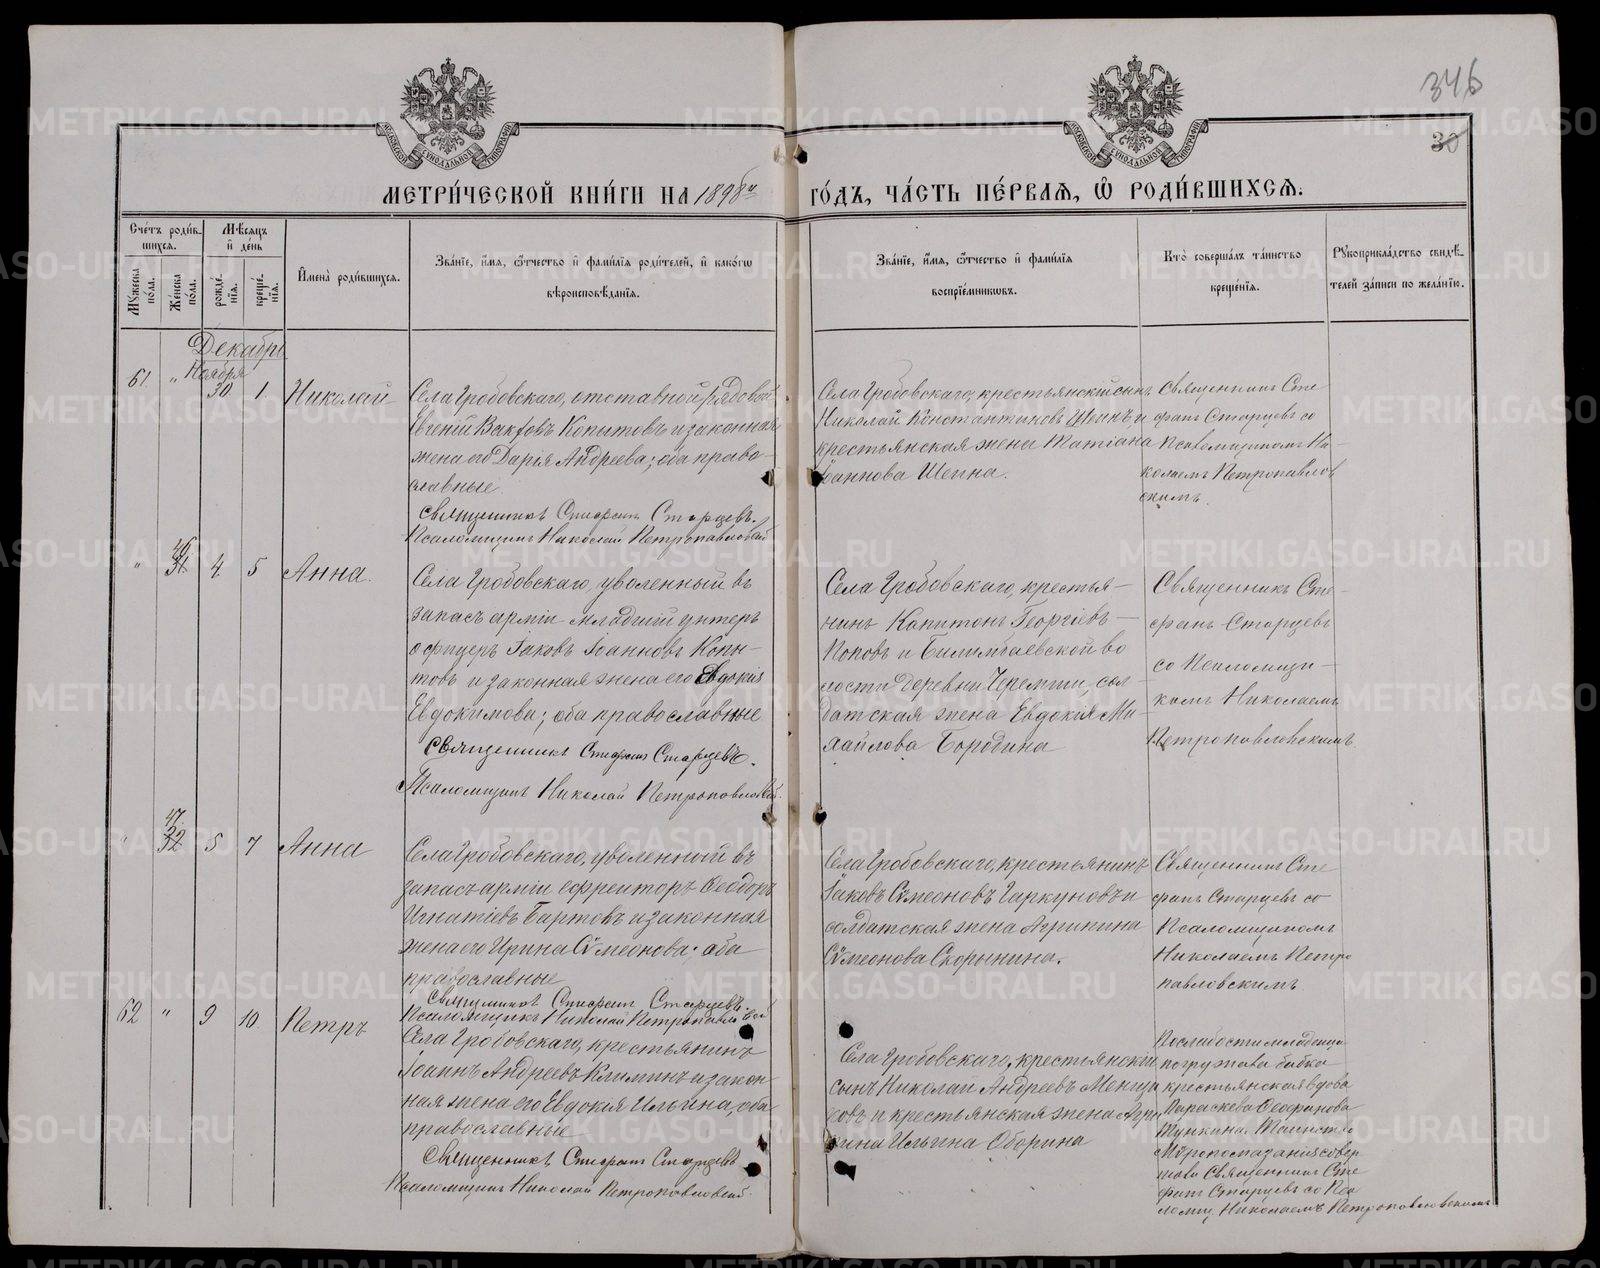 346
30
МЕТРИ́ЧЕСКОЙ КНИ́ГИ НА 1898й ГО́ДЪ, ЧА́СТЬ ПЕ́РВАѦ, Ѡ РОДИ́ВШИХСѦ.
Сче́тъ роди́в-
шихся.
Мѣ́сяцъ
и҆ де́нь
Мꙋ́жеска по́ла.
Же́нска по́ла.
рожде́нїя.
креще́нїя.
И҆мена̀ роди́вшихся.
Зва́нїе, и҆́мя, ѻ҆́тчество и҆ фами́лїя роди́телей, и҆ како́гѡ
вѣроисповѣ́данїя.
Зва́нїе, и҆́мя, ѻ҆́тчество и҆ фами́лїя
воспрїе́мниковъ.
Кто̀ соверша́лъ та́инство
креще́нїя.
Рꙋкоприкла́дство свидѣ́-
телей за́писи по жела́нїю.
Декабрь
Ноября
61 " 30 1. Николай
Села Гробовскаго, отставной рядовой
Евгеній Вакховъ Копытовъ и законная
жена его Дарія Андреева; оба право-
славные.
Священникъ Стефанъ Старцевъ.
Псаломщикъ Николай Петропавловскій
Села Гробовскаго, крестьянскій сынъ
Николай Константиновъ и
крестьянская жена Татіана
Іоаннова Шеина.
Священникъ Сте
фанъ Старцевъ со
Псаломщикомъ Ни-
колаемъ Петропавлов
скимъ.
46
" 31 4. 5 Анна.
Села Гробовскаго, уволенный въ
запасъ арміи младшій унтеръ
офицеръ Іаковъ Іоанновъ Копы-
товъ и законная жена его Евдокія
Евдокимова; оба православные
Священникъ Стефанъ Старцевъ.
Псаломщикъ Николай Петропавловскій.
Села Гробовскаго, крестья-
нинъ Капитонъ Георгіевъ
Поповъ и Билимбаевской во
лости деревни Черемши, сол-
датская жена Евдокія Ми-
хайлова Бородина
Священникъ Сте-
фанъ Старцевъ
со Псаломщи-
комъ Николаемъ
Петропавловскимъ
47.
" 32 5 7 Анна
Села Гробовскаго, уволенной въ
запасъ арміи ефрейторъ Ѳеодоръ
Игнатіевъ Бартовъ и законная
жена его Ирина Сѵмеонова; оба
православные
Священникъ Стефанъ Старцевъ.
Псаломщикъ Николай Петропавловскій
Села Гробовскаго, крестьянинъ
Іаковъ Сѵмеоновъ Чиркуновъ и
солдатская жена Агрипина
Сѵмеонова Скорынина.
Священникъ Сте
фанъ Старцевъ со
Псаломщикомъ
Николаемъ Петро
павловскимъ.
62 " 9 10. Петръ
Села Гробовскаго, крестьянинъ
Іоаннъ Андреевъ Климинъ и закон-
ная жена его Евдокія Ильина, оба
православные
Священникъ Стефанъ Старцевъ
Псаломщикъ Николай Петропавловскій.
Села Гробовскаго, крестьянскій
сынъ Николай Андреевъ
и крестьянская жена Агри
пина Ильина Оборина
По слабости младенца
погружала бабка
крестьянская вдова
Параскева
Таинство
Мѵропомазанія совер
шалъ Священникъ Сте
фанъ Старцевъ со Пса
ломщ. Николаемъ Петропавловскимъ
МОСКОВСКОЙ СУНОДАЛЬНОЙ ТИПОГРАФІИ
МОСКОВСКОЙ СУНОДАЛЬНОЙ ТИПОГРАФІИ
METRIKI.GASO-URAL.RU